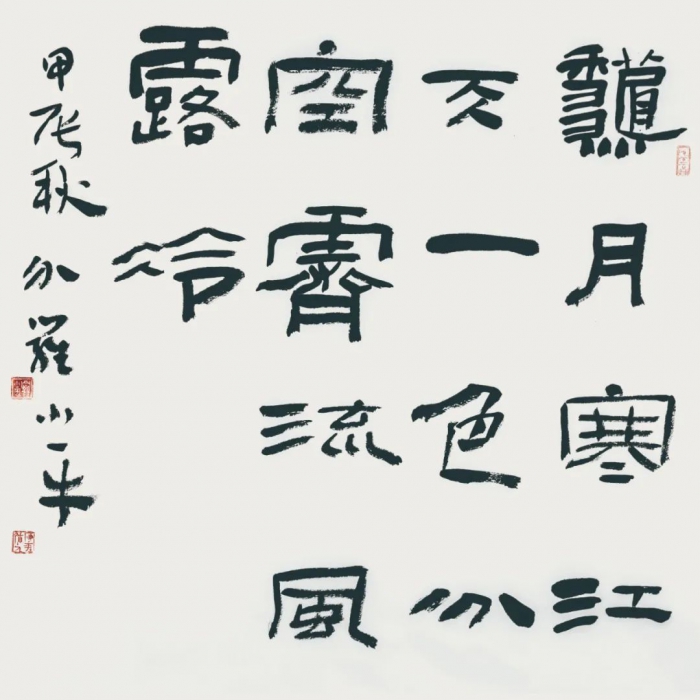 月寒江
天一色
空霽流風
露冷
甲辰秋羅小